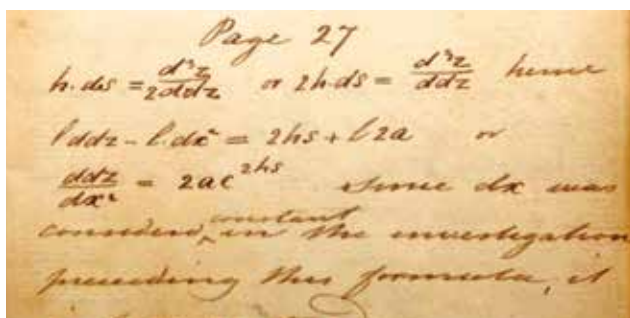 Page 27
h.ds = d³z/2ddz or 2h.ds = d³z/ddz hence
l ddz - l.dx² = 2hs + l 2a or
ddz/dx² = 2ac^2hs Since dx was
considered constant in the investigation
preceding this formula, it